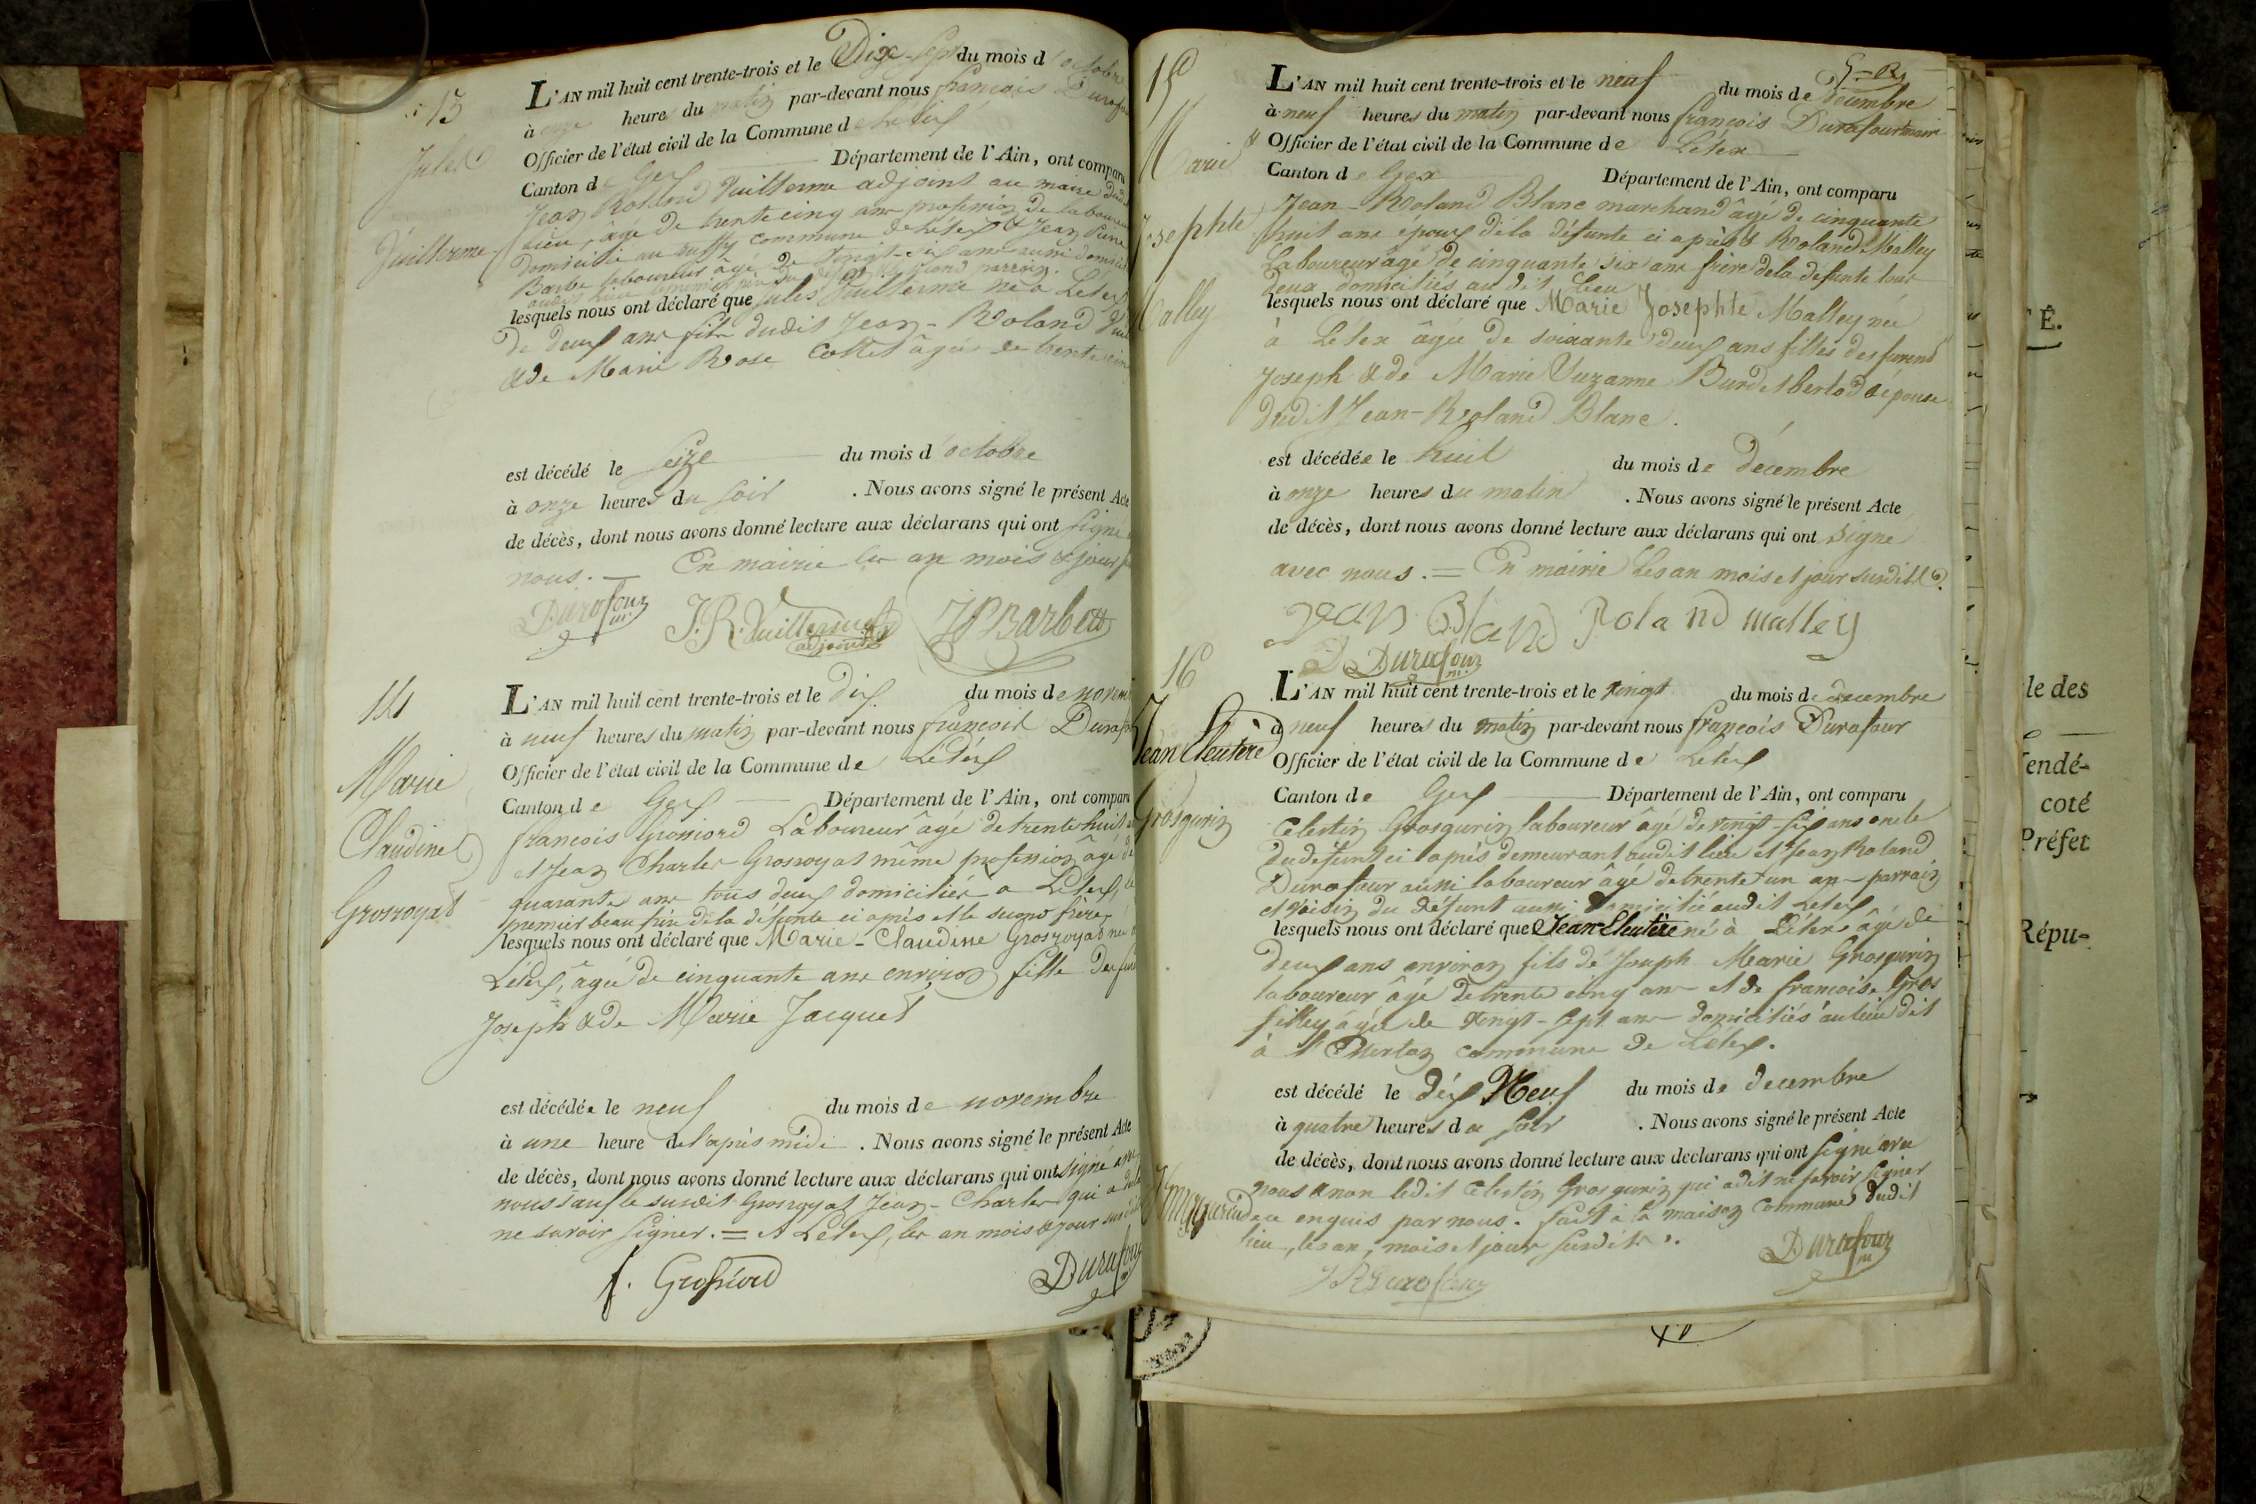 13
Jules
Guillerme
L'AN mil huit cent trente-trois et le Dix-sept du mois d'octobre
à onze heure du matin par-devant nous françois Durafour
Officier de l'état civil de la Commune de Lélex
Canton de Gex Département de l'Ain, ont comparu
Jean Roland Guillerme adjoint au maire dudit
lieu, âgé de trente cinq ans profession de laboureur
domicilié au commune de Lélex & Jean Pierre
Barbe laboureur âgé de vingt-six ans aussi domicilié
lesquels nous ont déclaré que Jules Guillerme né à Lélex
de deux ans fils dudit Jean-Roland
& de Marie Rose Collet âgée de trente cinq
est décédé le seize du mois d'octobre
à onze heures du soir . Nous avons signé le présent Acte
de décès, dont nous avons donné lecture aux déclarans qui ont signé
nous. — En mairie les an mois & jour
Durafour m. J. R. Guillermet adjoint JP Barbe
14
Marie
Claudine
Grosroyat
L'AN mil huit cent trente-trois et le dix du mois de novem
à neuf heures du matin par-devant nous françois Durafour
Officier de l'état civil de la Commune de Lélex
Canton de Gex — Département de l'Ain, ont comparu
françois Grossiord Laboureur âgé de trente huit
et Jean Charles Grosroyat même profession âgé de
quarante ans tous deux domiciliés a Lélex, le
premier beau frère de la défunte ci après et le second frère,
lesquels nous ont déclaré que Marie-Claudine Grosroyat né
Lélex, âgée de cinquante ans environ fille des
Joseph & de Marie Jacquet
est décédée le neuf du mois de novembre
à une heure de l'après midi . Nous avons signé le présent Acte
de décès, dont nous avons donné lecture aux déclarans qui ont signé avec
nous sauf le susdit Grosroyat Jean-Charles qui a
ne savoir signer. = A Lélex, les an mois & jour susdits
f. Grossiord Durafour
15
Marie
Josephte
Malley
L'AN mil huit cent trente-trois et le neuf du mois de Décembre
à neuf heures du matin par-devant nous françois Durafour maire
Officier de l'état civil de la Commune de Lélex
Canton de Gex Département de l'Ain, ont comparu
Jean-Roland Blanc marchand âgé de cinquante
huit ans époux de la défunte ci après & Roland Malley
Laboureur âgé de cinquante six ans frère de la defunte tous
deux domiciliés au dit Lieu
lesquels nous ont déclaré que Marie Josephte Malley née
à Lélex âgée de soixante deux ans filles des furent
Joseph & de Marie Suzanne Burdet épouse
dudit Jean-Roland Blanc.
est décédée le huit du mois de décembre
à onze heures du matin . Nous avons signé le présent Acte
de décès, dont nous avons donné lecture aux déclarans qui ont signe
avec nous. = En mairie Les an mois et jour susdits.
Jean Blanc Roland malley
Durafour m.
16
Jean Eleutère
Grosgurin
L'AN mil huit cent trente-trois et le vingt du mois de decembre
à neuf heures du matin par-devant nous françois Durafour
Officier de l'état civil de la Commune de Lélex
Canton de Gex Département de l'Ain, ont comparu
Celestin Grosgurin laboureur âgé de vingt-six ans oncle
du défunt ci après demeurant audit lieu et Jean Roland
Durafour aussi laboureur âgé de trente un ans parrain
et voisin du défunt aussi domicilié audit Lélex
lesquels nous ont déclaré que Jean Eleutère né à Lélex âgé de
deux ans environ fils de Joseph Marie Grosgurin
laboureur âgé de trente cinq ans et de francoise Gros
filley âgée de vingt-sept ans domiciliés au lieu dit
à commune de Lélex.
est décédé le dix Neuf du mois de decembre
à quatre heures du soir . Nous avons signé le présent Acte
de décès, dont nous avons donné lecture aux déclarans qui ont signé avec
nous & non ledit Celestin Grosgurin qui a dit ne savoir signer
de ce enquis par nous. fait à la maison Commune dudit
lieu, les an, mois et jour susdits.
Durafour m
J R Durafour
É.
le des
endé-
coté
Préfet
Répu-